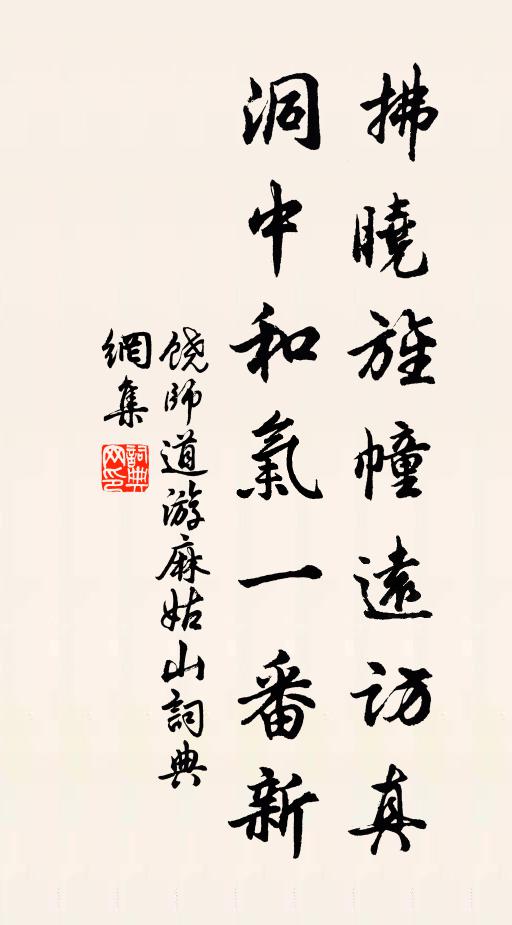 拂曉旌幢遠訪真
洞中和氣一番新
饒師道游麻姑山詞典
網集
詞典
网印